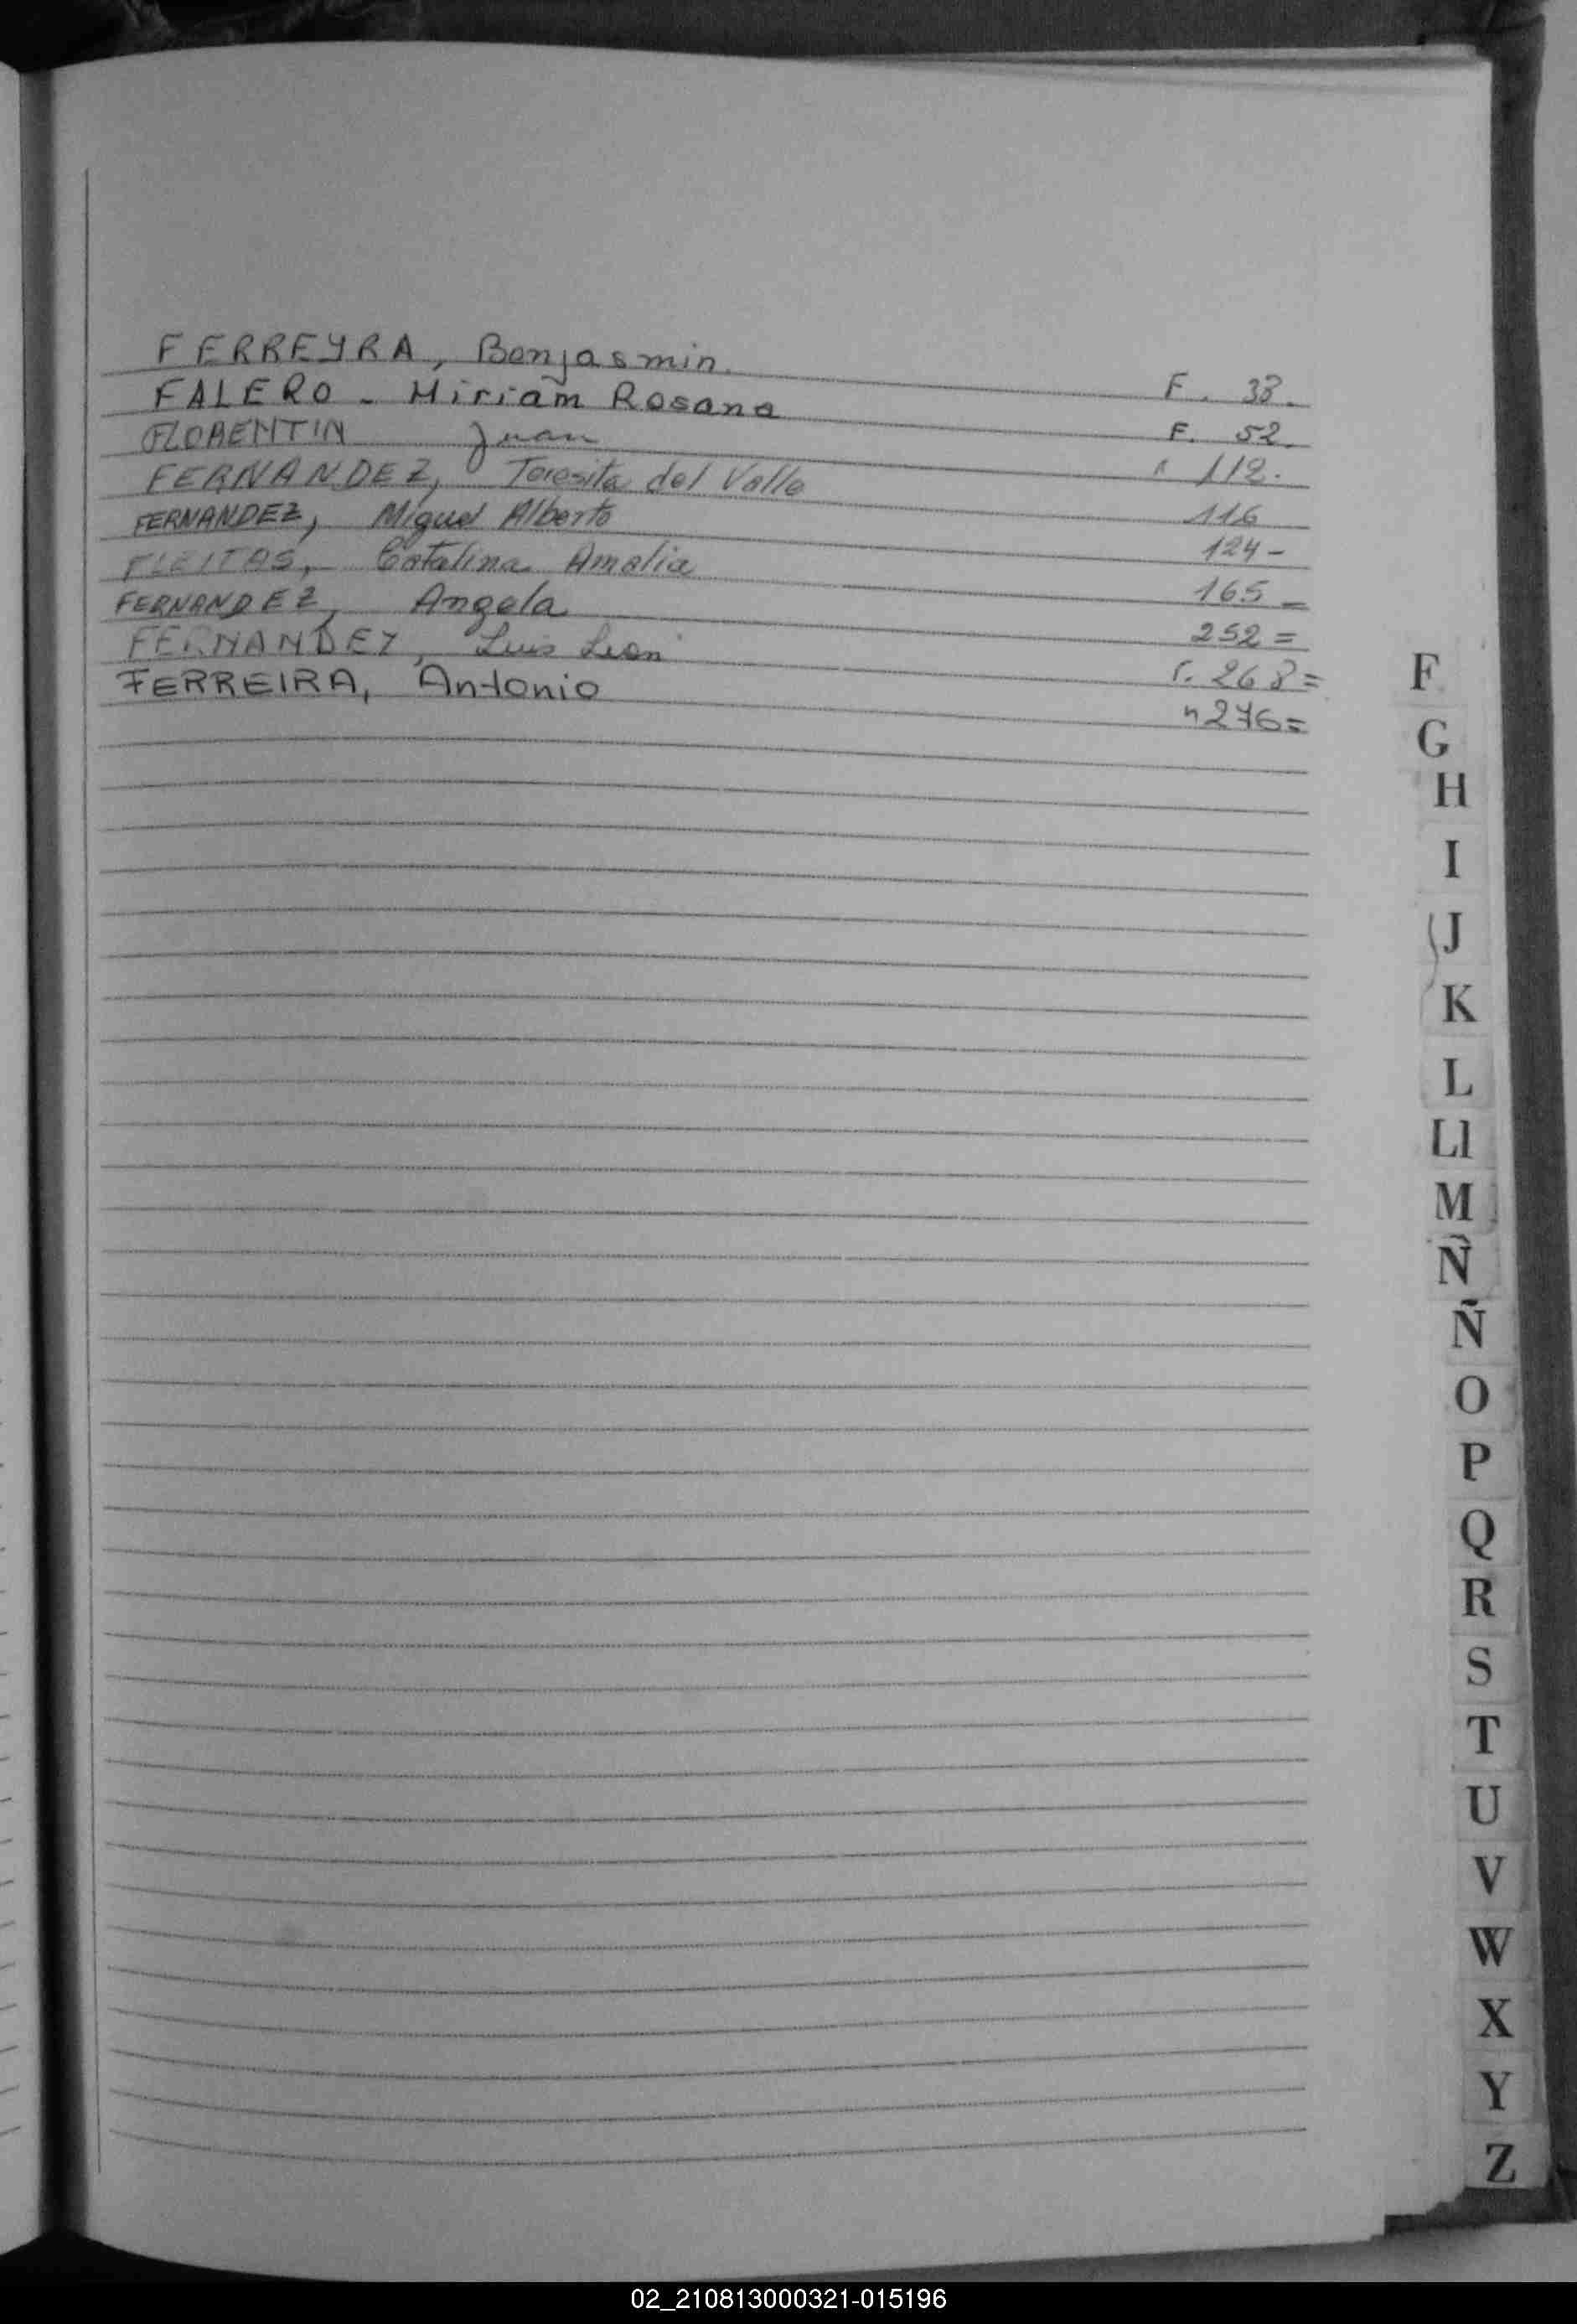 FERREYRA, Benjasmin. F. 33.
FALERO - Miriam Rosana F. 52.
FLORENTIN Juan " 112.
FERNANDEZ, Teresita del Valle 116
FERNANDEZ, Miguel Alberto 124-
FLEITAS, Catalina Amalia 165-
FERNANDEZ, Angela 252=
FERNANDEZ, Luis Leon F. 268=
FERREIRA, Antonio " 276=
F
G
H
I
J
K
L
Ll
M
Ñ
Ñ
O
P
Q
R
S
T
U
V
W
X
Y
Z
02_210813000321-015196